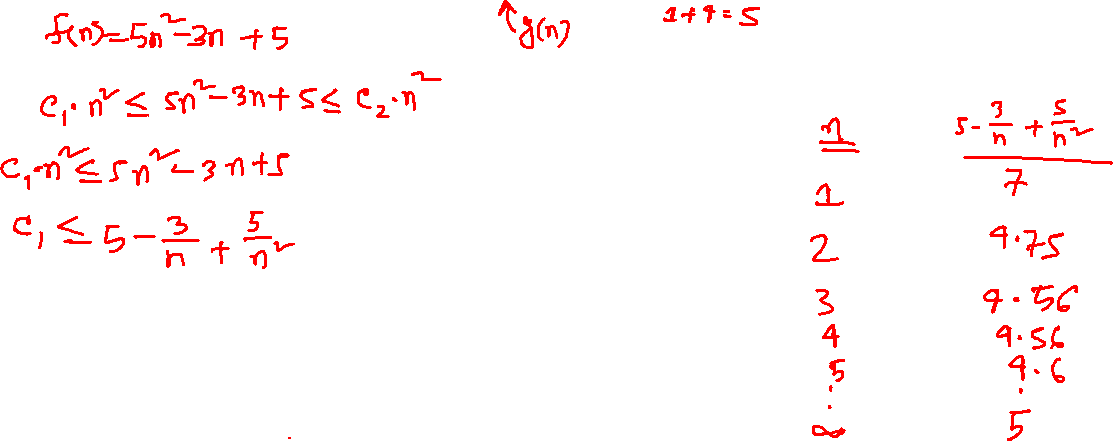 f(n)=5n²-3n+5
↖g(n)
1+4=5
C₁·n² ≤ 5n²-3n+5 ≤ C₂·n²
C₁·n² ≤ 5n²-3n+5
C₁ ≤ 5 - 3/n + 5/n²
n 5 - 3/n + 5/n²
1 7
2 4.75
3 4.56
4 4.56
5 4.6
⋮ ⋮
∞ 5